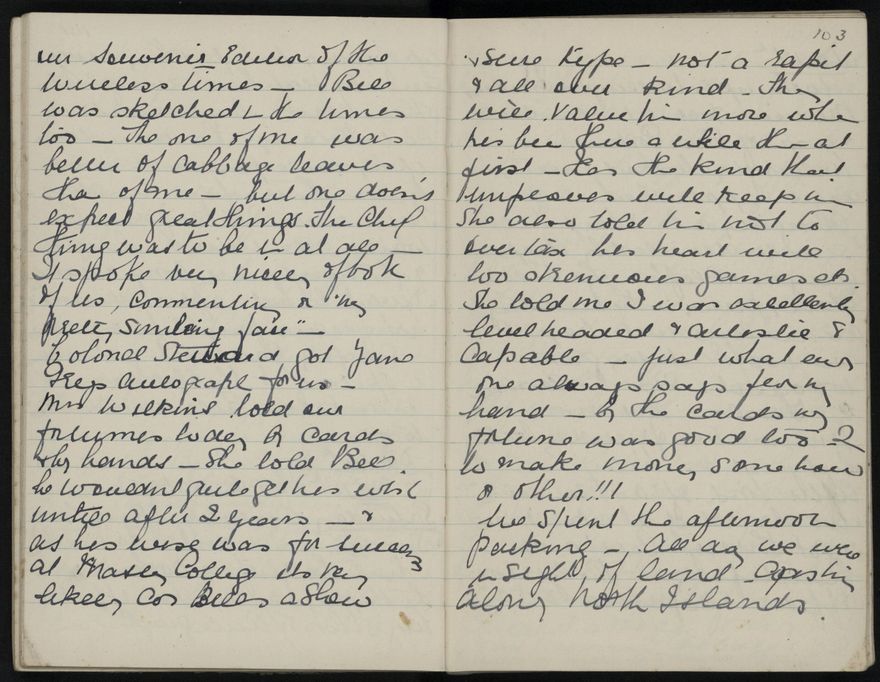 our Souvenir Edition of the
Wireless Times — Bill
was sketched in the times
too — The one of me was
better of Cabbage leaves
than of me — but one doesn't
expect great things. The Chief
thing was to be in at all —
It spoke very nicely of both
of us, commenting on "my
pretty, smiling face" —
Colonel Steward got Jane
Grey's autograph for us —
Mrs Wilkins told our
fortunes today by cards
& by hands — She told Bill
he wouldn't quite get his wish
until after 2 years — &
as his wish was for success
at Massey College its very
likely cos Bills a slow
103
& sure type — not a rapid
& all over kind — They
will value him more when
his been there a while than at
first — Has the kind that
improves with keeping
She also told him not to
overtax his heart with
too strenuous games etc.
She told me I was excellently
levelheaded & artistic &
Capable — just what every
one always says from my
hand — by the cards my
fortune was good too — I
to make money some how
or other!!!
We spent the afternoon
packing — All day we were
in sight of land — Coasting
along North Islands.